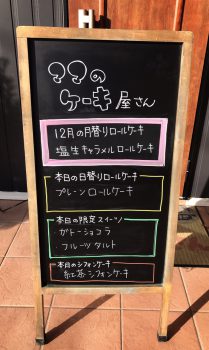 ??の
ケーキ屋さん
12月の月替りロールケーキ
塩生キャラメルロールケーキ
本日の日替りロールケーキ
プレーンロールケーキ
本日の限定スイーツ
ガトーショコラ
フルーツタルト
本日のシフォンケーキ
紅茶シフォンケーキ